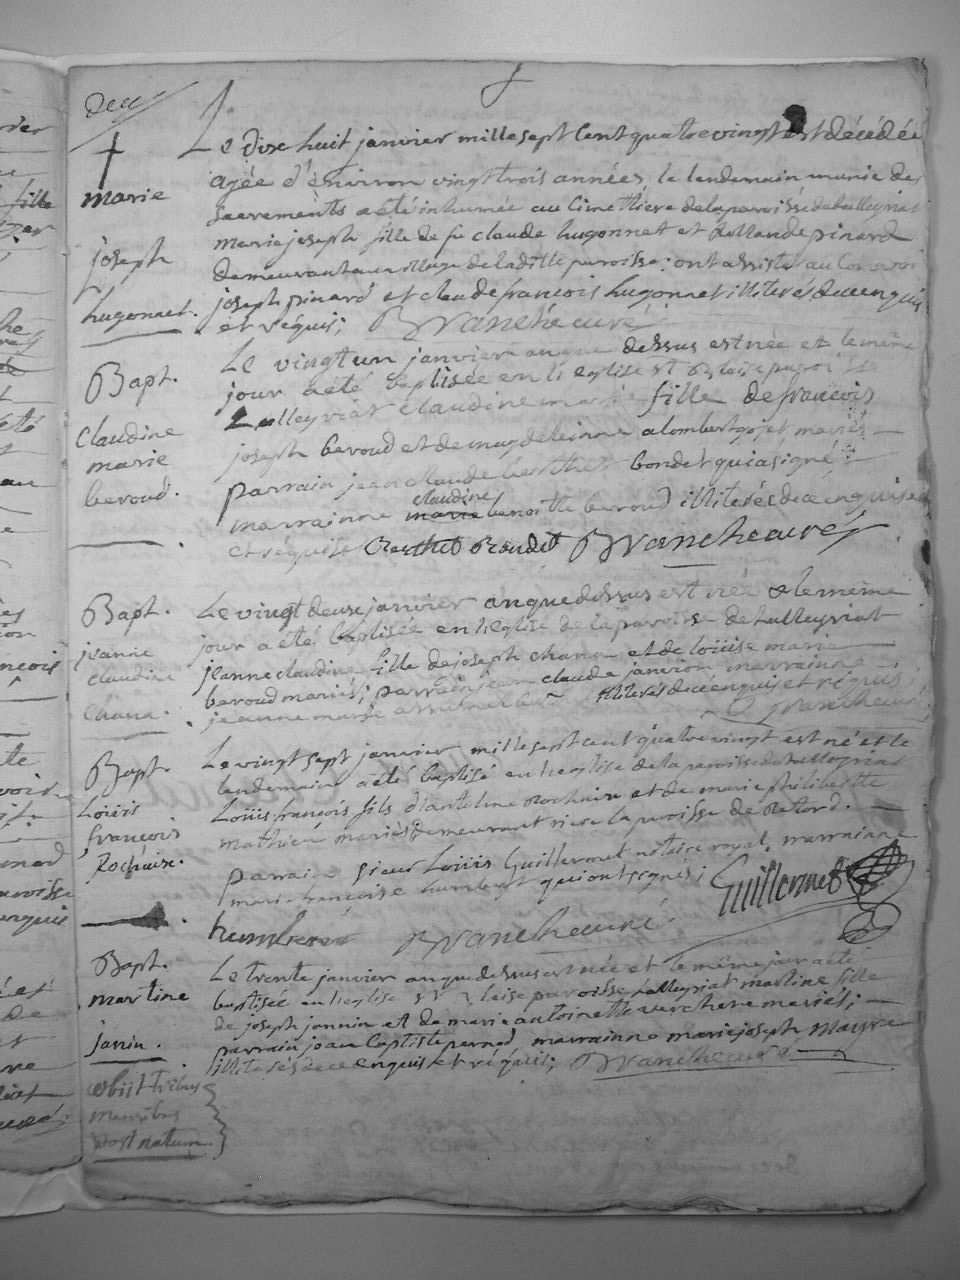 Deux
†
marie
joseph
hugonnet.
Le dixe huit janvier mille sept cent quatre vingt est décédée
agée d'environ vingt trois années, le lendemain munie des
sacrements a été inhumée au cimettière de la paroisse de talleyriat
marie joseph fille de fû claude hugonnet et Rollande pinard
demeurant au village de la ditte paroisse; ont assisté au convoi
joseph pinard et claude francois hugonnet illiterés de ce enquis
et réquis; Branche curé
Bapt.
claudine
marie
beroud.
Le vingt un janvier an que dessus est née et le même
jour a été baptisée en l'eglise st Blaise paroisse
talleyriat claudine marie fille de francois
joseph beroud et de magdeleinne alombert gojet mariés
parrain jean claude berthet bondet qui a signé
claudine
marrainne marie benoitte beroud illiterés de ce enquise
et réquise Berthet Bondet Branche curé
Bapt.
jeanne
claudine
chana.
Le vingt deuxe janvier an que dessus est née & le même
jour a été baptisée en l'eglise de la paroisse de talleyriat
jeanne claudine fille de joseph chana et de loüise marie
beroud mariés; parrain jean claude janvion marrainne
jeanne marie illiterés de ce enquis et réquis;
Branche curé
Bapt.
Loüis
françois
Rochaix.
Le vingt sept janvier mille sept cent quatre vingt est né et le
lendemain a été baptisé en l'eglise de la paroisse de talleyriat
Loüis francois fils d'antelme Rochaix et de marie philiberte
mathieu mariés demeurant rière la paroisse de Retord.
parrain sieur Loüis Guillermet notaire royal, marrainne
marie françoise humbert qui ont signés; Guillermet
humbert Branche curé
Bapt.
martine
janin.
obiit tribus
mensibus
post natum.
Le trente janvier an que dessus est née et le même jour a été
baptisée en l'eglise st Blaise paroisse talleyriat martine fille
de joseph jannin et de marie antoinette verchere mariés;
parrain jean baptiste pernod marrainne marie joseph mayre
illiterés de ce enquis et réquis; Branche curé